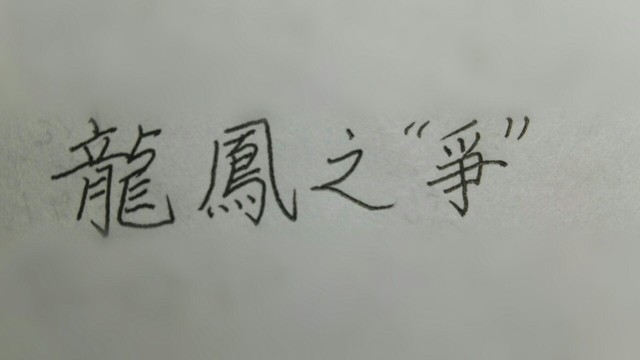 龍鳳之“爭”